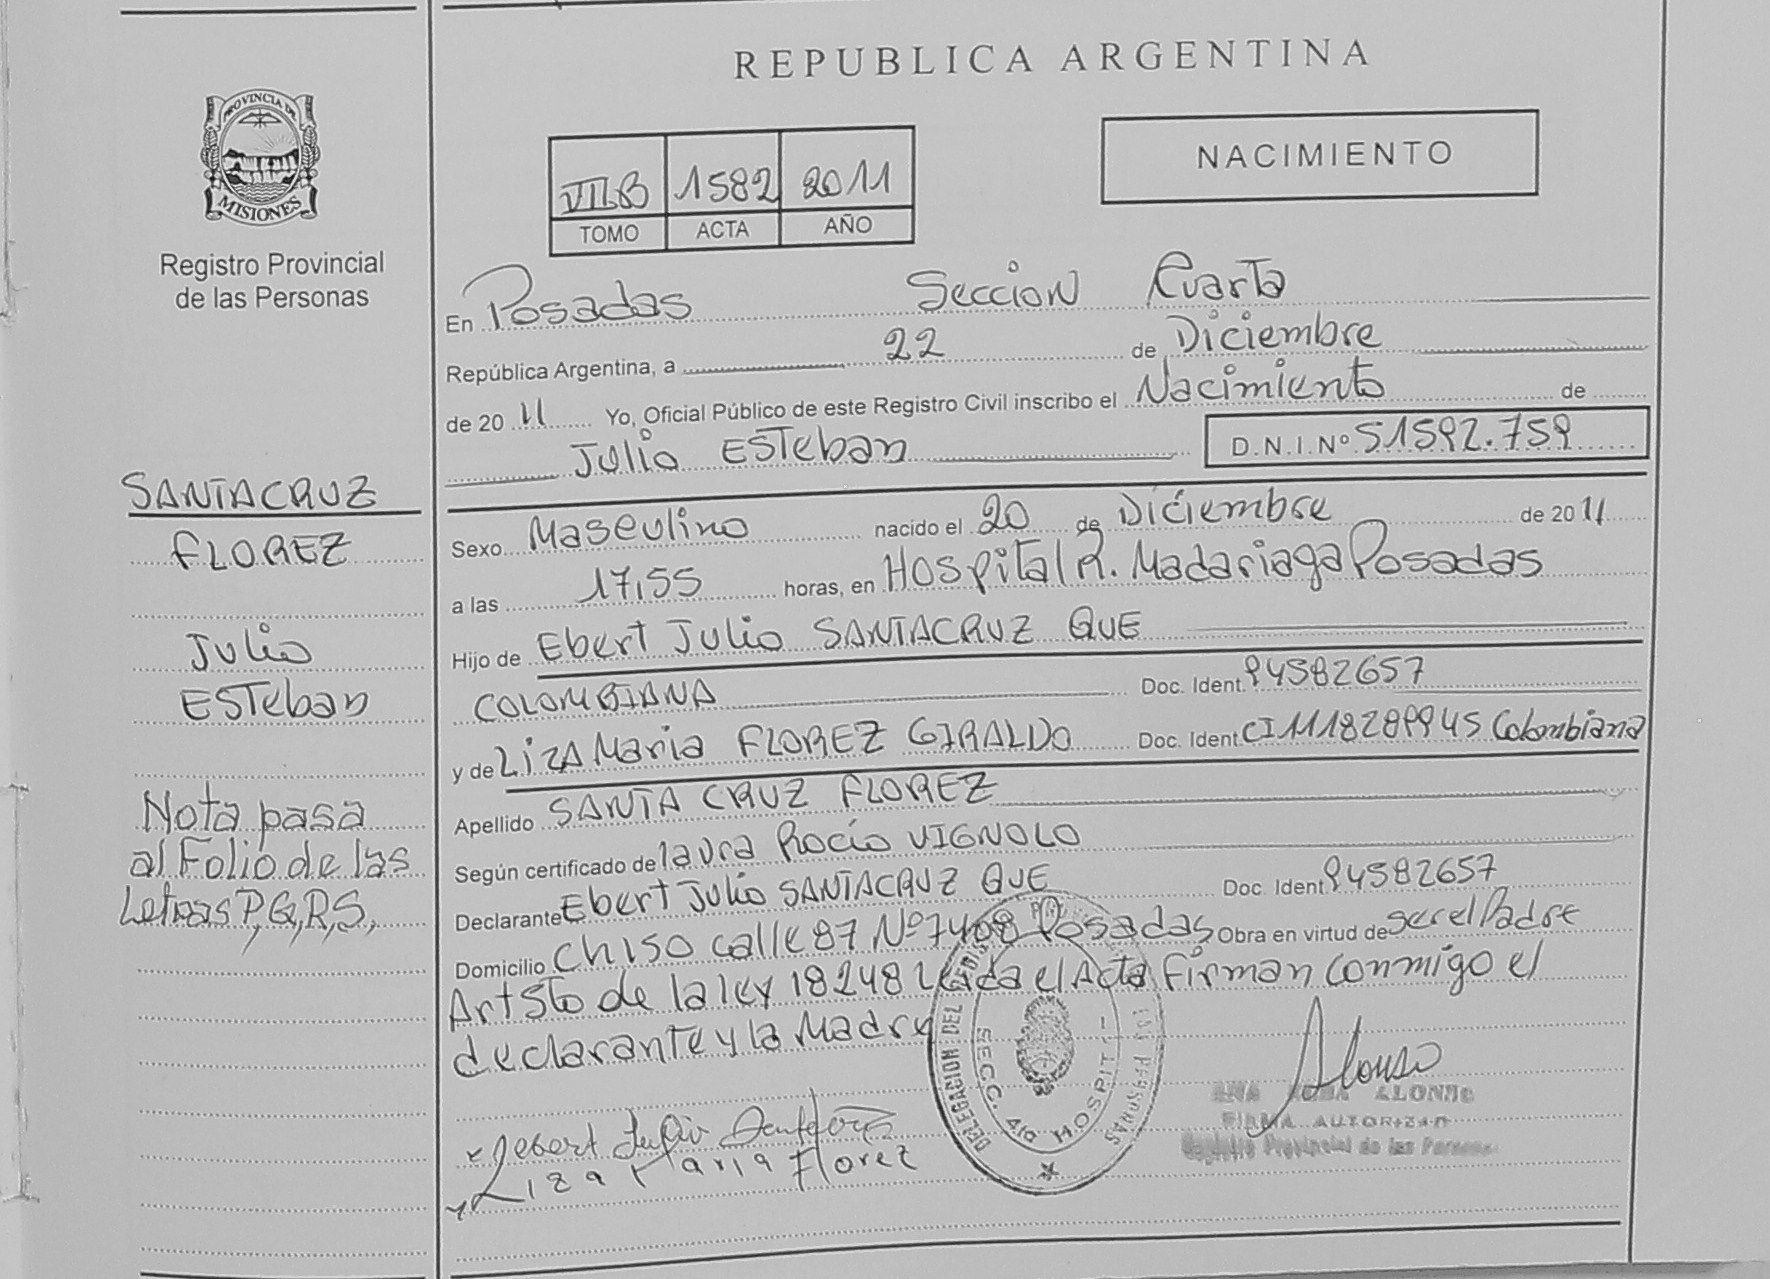 REPUBLICA ARGENTINA
PROVINCIA DE
MISIONES
Registro Provincial
de las Personas
NACIMIENTO
VII.B 1582 2011
TOMO ACTA AÑO
En Posadas Seccion Cuarta
República Argentina, a 22 de Diciembre
de 2011 Yo, Oficial Público de este Registro Civil inscribo el Nacimiento de
Julio ESTeban D.N.I.Nº 51592.759
SANTACRUZ
FLOREZ
Julio
ESTeban
Nota pasa
al Folio de las
Letras P,Q,R,S,
Sexo Masculino nacido el 20 de Diciembre de 2011
a las 17,55 horas, en Hospital R. Madariaga Posadas
Hijo de Ebert Julio SANTACRUZ QUE
COLOMBIANA Doc. Ident. 94582657
y de LizA Maria FLOREZ GIRALDO Doc. Ident. CI 1118289945 Colombiana
Apellido SANTA CRUZ FLOREZ
Según certificado de laura Rocío VIGNOLO
Declarante Ebert Julio SANTACRUZ QUE Doc. Ident. 94582657
Domicilio Ch 150 calle 87 Nº 7408 Posadas Obra en virtud de ser el Padre
Art 5to de la ley 18248 Leida el Acta Firman conmigo el
declarante y la Madre
DELEGACION DEL LAS PERSONAS
SECC. 4ta HOSPIT
Alonso
ANA ALONSO
FIRMA AUTORIZAD
Registro Provincial de las Personas
Ebert Julio Santacruz
Liza Maria Florez